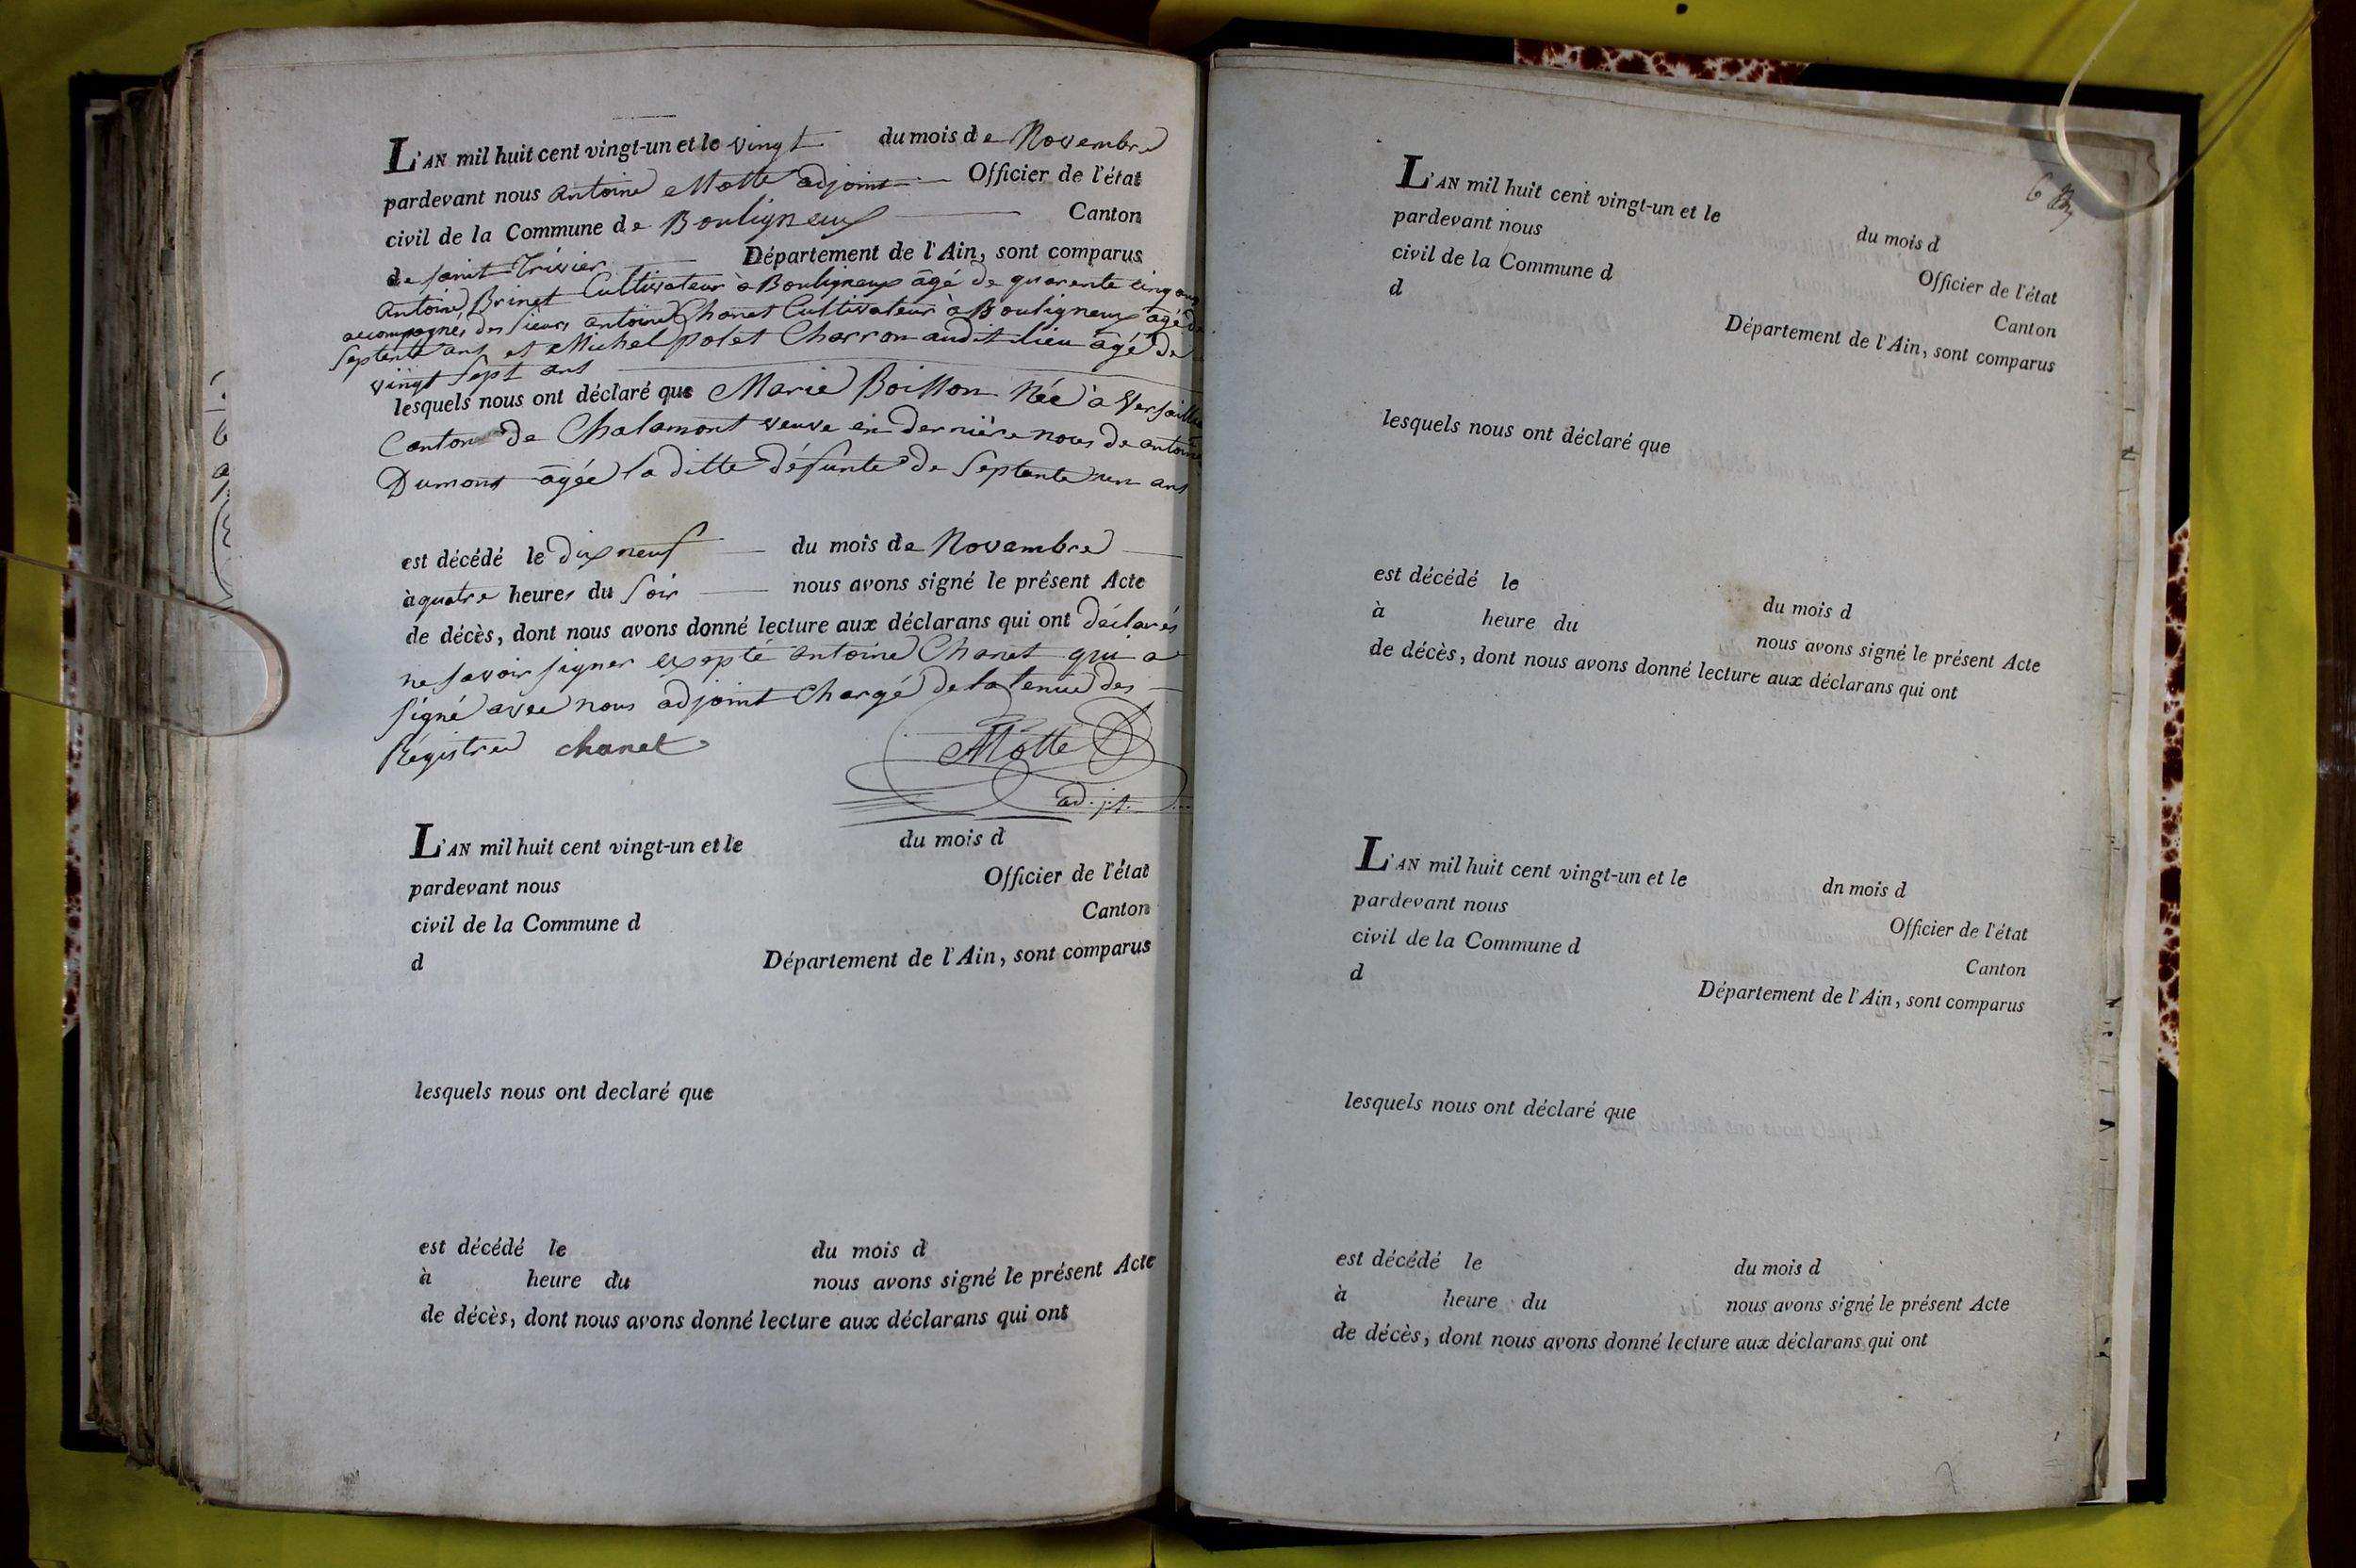 L'AN mil huit cent vingt-un et le vingt du mois de Novembre
pardevant nous antoine Motte adjoint Officier de l'état
civil de la Commune de Bouligneux Canton
de saint Trivier Département de l'Ain, sont comparus
Antoine Brinet Cultivateur à Bouligneux âgé de quarente cinq ans
accompagnés des sieurs antoine Chanet Cultivateur à Bouligneux âgé de
septente ans et Michel polet Charron audit lieu âgé de
vingt sept ans
lesquels nous ont déclaré que Marie Boisson Née à Versailleux
Canton de Chalamont veuve en dernière nous de antoine
Dumont âgée la ditte défunte de septente un ans
est décédé le dix neuf du mois de Novembre
à quatre heures du soir nous avons signé le présent Acte
de décès, dont nous avons donné lecture aux déclarans qui ont déclarés
ne savoir signer exepté antoine Chanet qui a
signé avec nous adjoint Chargé de la tenue des
Régistre chanet Motte
ad.j.t.
L'AN mil huit cent vingt-un et le du mois d
pardevant nous Officier de l'état
civil de la Commune d Canton
d Département de l'Ain, sont comparus
lesquels nous ont declaré que
est décédé le du mois d
à heure du nous avons signé le présent Acte
de décès, dont nous avons donné lecture aux déclarans qui ont
6
L'AN mil huit cent vingt-un et le du mois d
pardevant nous Officier de l'état
civil de la Commune d Canton
d Département de l'Ain, sont comparus
lesquels nous ont déclaré que
est décédé le du mois d
à heure du nous avons signé le présent Acte
de décès, dont nous avons donné lecture aux déclarans qui ont
L'AN mil huit cent vingt-un et le dn mois d
pardevant nous Officier de l'état
civil de la Commune d Canton
d Département de l'Ain, sont comparus
lesquels nous ont déclaré que
est décédé le du mois d
à heure du nous avons signé le présent Acte
de décès, dont nous avons donné lecture aux déclarans qui ont